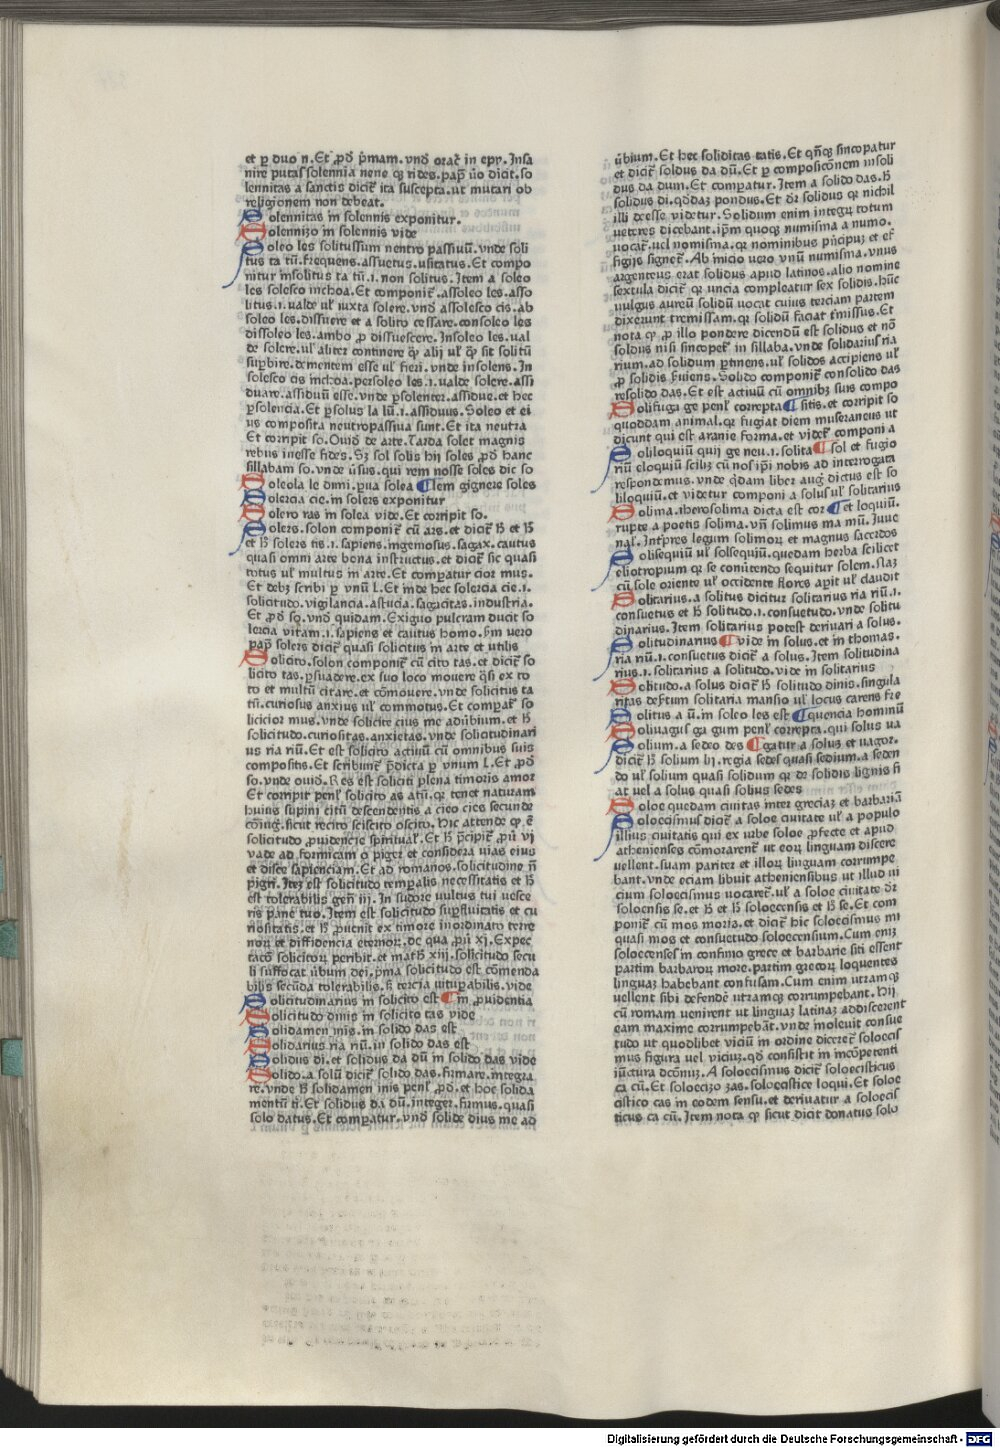 et ꝑ duo n. Et ꝓdͬ pͥmam. vnd̾ orac̾ in epy. Insa
nire putas solennia nene qꝫ rides. pap̄ v̾o dicit. so
lennitas a sanctis dicit̾ ita suscepta. ut mutari ob
religionem non debeat.
Solennitas in solennis exponitur.
Solennizo in solennis vide
Soleo les solitus sum neutro passiuū. vnde soli
tus ta tū. frequens. assuetus. usitatus. Et compo
nitur insolitus ta tū .i. non solitus. Item a soleo
les solesco inchoa. Et componit̾ . assoleo les. asso
litus .i. ualde ul̾ iuxta solere. vnd̾ assolesco cis. ab
soleo les. dissuere et a solito cessare. consoleo les
dissoleo les. ambo ꝓ dissuescere. Insoleo les. ual
de solere. ul̾ aliter continere qͣꝫ alij ul̾ qͣꝫ sit solitū
suꝑbire. dementem esse ul̾ fieri. vnde insolens. In
solesco cis inchoa. persoleo les .i. ualde solere. assi
duare. assiduū esse. vnde ꝑsolenter. assidue. et hec
ꝑsolencia. Et ꝑsolus la lū .i. assiduus. Soleo et ei
us composita neutropassiua sunt. Et ita neutra
Et corripit so. Ouid̾ de arte. Tarda solet magnis
rebus inesse fides. Sꝫ sol solis hꝫ soles ꝓd̾ hanc
sillabam so. vnde v̾sus. qui rem nosse soles dic so
Soleola le dimi. ꝑua solea ¶ lem gignere soles
Solercia cie. in solers exponitur
Solero ras in solea vide. Et corripit so.
Solers. solon componit̾ cū ars. et dicit̾ h̾ et h̾
et h̾ solers tis .i. sapiens. ingeniosus. sagax. cautus
quasi omni arte bona instructus. et dicit̾ sic quasi
totus ul̾ multus in arte. Et comꝑatur cior mus.
Et debꝫ scribi ꝑ vnū l. Et inde hec solercia cie .i.
solicitudo. vigilancia. astucia. sagacitas. industria.
Et ꝓd̾ so. vnd̾ quidam. Exiguo pulcram ducit so
lercia vitam .i. sapiens et cautus homo. ẜm uero
pap̄ solers dicit̾ quasi solicitus in arte et utilis
Solicito. solon componit̾ cū cito tas. et dicit̾ so
licito tas. ꝑsuadere. ex suo loco mouere q̄si ex to
to et multū citare. et cōmouere. vnde solicitus ta
tū. curiosus anxius ul̾ commotus. Et comꝑat̾ so
licicior mus. vnde solicite cius me aduͤbium. et h̾
solicitudo. curiositas. anxietas. vnde solicitudinari
us ria riū. Et est solicito actiuū cū omnibus suis
compositis. Et scribunt̾ pͥdicta ꝑ vnum l. Et ꝓd̾
so. vnde ouid̾. Res est soliciti plena timoris amor
Et corripit penl̾ solicito as atū. qꝛ tenet naturam
huius supini citū descendentis a cieo cies secunde
cōiug̾. sicut recito suscito oscito. Hic attende qͥ ē
solicitudo ꝓuidencie spirituał. Et h̾ pͥcipit̾ ꝓū vj
vade ad formicam o piger et considera vias eius
et disce sapienciam. Et ad romanos. solicitudine nō
pigri. Itē est solicitudo temꝑalis necessitatis et h̾
est tolerabilis gen̄ iij. In sudore uultus tui uesce
ris pane tuo. Item est solicitudo suꝑfluitatis et cu
riositatis. et h̾ ꝓuenit ex timore inordinato terre
noꝝ et diffidencia eternoꝝ. de qua ꝓū xj. Expec
tacō solicitoꝝ peribit. et math̾ xiij. solicitudo secu
li suffocat u̾bum dei. pͥma solicitudo est cōmenda
bilis secūda tolerabilis. ẜ tercia uituꝑabilis. vide
Solicitudinarius in solicito est ¶ in ꝓuidentia
Solicitudo dinis in solicito tas vide
Solidamen inis. in solido das est
Solidarius ria riū. in solido das est
Solidus di. et solidus da dū in solido das vide
Solido. a solū dicit̾ solido das. firmare. integra
re. vnde h̾ solidamen inis penl̾ ꝓd̾. et hoc solida
mentū ti. Et solidus da dū. integer. firmus. quasi
solo datus. Et comꝑatur. vnd̾ solide dius me ad
u̾bium. Et hec soliditas tatis. Et qn̄qꝫ sincopatur
et dicit̾ soldus da dū. Et ꝑ composicōnem insoli
dus da dum. Et comꝑatur. Item a solido das. h̾
solidus di. qd̾daꝫ pondus. Et dr̄ solidus qꝛ nichil
illi deesse videtur. Solidum enim integrꝫ totum
ueteres dicebant. ip̄m quoqꝫ numisma a numo.
uocat̾. uel nomisma. qꝛ nominibus pͥncipuꝫ et ef
figijs signet̾. Ab inicio uero vnū numisma. vnus
argenteus erat solidus apud latinos. alio nomine
sextula dicit̾ qꝛ uncia compleatur sex solidis. hūc
uulgus aureū solidū uocat cuius terciam partem
dixerunt tremissam. qꝛ solidū faciat t̾missus. Et
nota qͥ ꝓ illo pondere dicendū est solidus et nō
soldus nisi sincopet̾ in sillaba. vnde solidarius ria
rium. ad solidum ꝑtinens. ul̾ solidos accipiens ul̾
ꝓ solidis ẜuiens. Solido componit̾ consolido das
resolido das. Et est actiuū cū omnibꝫ suis compo
Solifuga ge penl̾ correpta ¶ sitis. et corripit so
quoddam animal. qꝛ fugiat diem
dicunt qui est aranie forma. et videt̾ componi a
Soliloquiū quij ge neu .i. solita ¶ sol et fugio
riū eloquiū scilꝫ cū nos ip̄i nobis ad interrogata
respondemus. vnde q̄dam liber aug̾ dictus est so
liloquiū. et videtur componi a solus ul̾ solitarius
Solima. iherosolima dicta est cor ¶ et loquiū.
rupte a poetis solima. vn̄ solimus ma mū. Iuue
nal̾. Int̾pres legum solimoꝝ et magnus sacerdos
Solisequiū ul̾ solsequiū. quedam herba scilicet
eliotropium qꝛ se conuͤtendo sequitur solem. naꝫ
cū sole oriente ul̾ occidente flores aꝑit ul̾ claudit
Solitarius. a solitus dicitur solitarius ria riū .i.
consuetus et h̾ solitudo .i. consuetudo. vnde solitu
dinarius. Item solitarius potest deriuari a solus.
Solitudinarius ¶ vide in solus. et in thomas.
ria riū .i. consuetus dicit̾ a solus. Item solitudina
rius .i. solitarius a solitudo. vide in solitarius
Solitudo. a solus dicit̾ h̾ solitudo dinis. singula
ritas desertum solitaria mansio ul̾ locus carens fre
Solitus a ū. in soleo les est ¶ quencia hominū
Soliuagus ga gum penl̾ correpta. qui solus ua
Solium. a sedeo des ¶ gatur a solus et uagor.
dicit̾ h̾ solium lij. regia sedes quasi sedium. a seden
do ul̾ solium quasi solidum qꝛ de solidis lignis fi
at uel a solus quasi solius sedes
Soloe quedam ciuitas inter greciaꝫ et barbariā
Soloecismus dicit̾ a soloe ciuitate ul̾ a populo
illius ciuitatis qui ex urbe soloe ꝓfecte et apud
athenienses cōmorarent̾ ut eoꝝ linguam discere
uellent. suam pariter et illoꝝ linguam corrumpe
bant. vnde eciam libuit atheniensibus ut illud ui
cium soloecismus uocaret̾. ul̾ a soloe ciuitate dr̄
soloensis se. et h̾ et h̾ soloecensis et h̾ se. Et com
ponit̾ cū mos moris. et dicit̾ hic soloecismus mi
quasi mos et consuetudo soloecensium. Cum eniꝫ
soloecenses in confinio grece et barbarie siti essent
partim barbaroꝝ more. partim grecoꝝ loquentes
linguaꝫ habebant confusam. Cum enim utramqꝫ
uellent sibi defendē utramqꝫ corrumpebant. Hij
cū romam uenirent ut linguaꝫ latinaꝫ addiscerent
eam maxime corrumpebāt. vnde inoleuit consue
tudo ut quodlibet viciū in ordine diceret̾ soloecis
mus figura vel viciuꝫ. qd̾ consistit in incōpetenti
iūctura dcōnuꝫ. A soloecismus dicit̾ soloecisticus
ca cū. Et soloecizo zas. soloecistice loqui. Et soloe
cistico cas in eodem sensu. et deriuatur a soloecis
ticus ca cū. Item nota qͥ sicut dicit donatus solo
Digitalisierung gefördert durch die Deutsche Forschungsgemeinschaft - DFG